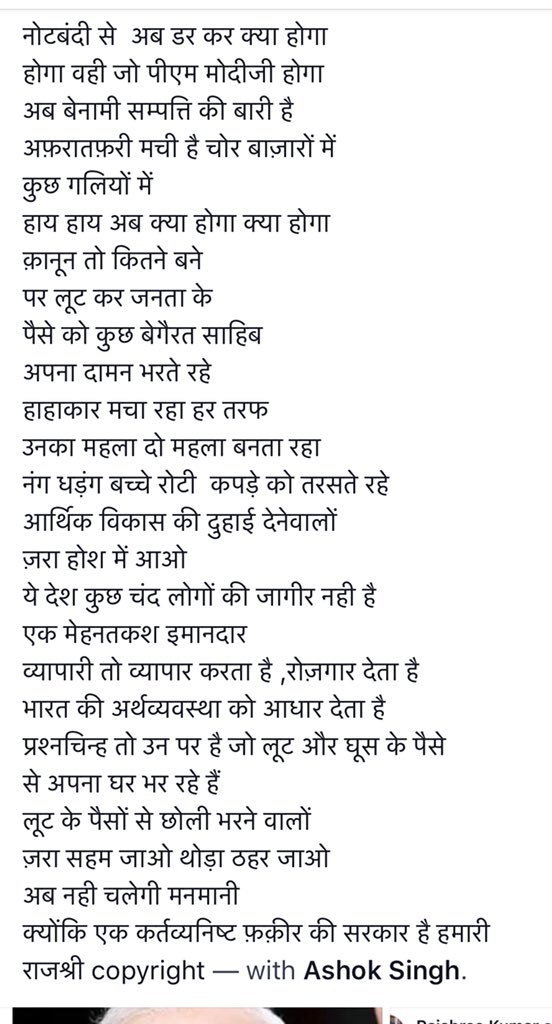 नोटबंदी से  अब डर कर क्या होगा
होगा वही जो पीएम मोदीजी होगा
अब बेनामी सम्पत्ति की बारी है
अफ़रातफ़री मची है चोर बाज़ारों में
कुछ गलियों में
हाय हाय अब क्या होगा क्या होगा
क़ानून तो कितने बने
पर लूट कर जनता के
पैसे को कुछ बेगैरत साहिब
अपना दामन भरते रहे
हाहाकार मचा रहा हर तरफ
उनका महला दो महला बनता रहा
नंग धड़ंग बच्चे रोटी  कपड़े को तरसते रहे
आर्थिक विकास की दुहाई देनेवालों
ज़रा होश में आओ
ये देश कुछ चंद लोगों की जागीर नही है
एक मेहनतकश इमानदार
व्यापारी तो व्यापार करता है ,रोज़गार देता है
भारत की अर्थव्यवस्था को आधार देता है
प्रश्नचिन्ह तो उन पर है जो लूट और घूस के पैसे
से अपना घर भर रहे हैं
लूट के पैसों से छोली भरने वालों
ज़रा सहम जाओ थोड़ा ठहर जाओ
अब नही चलेगी मनमानी
क्योंकि एक कर्तव्यनिष्ट फ़क़ीर की सरकार है हमारी
राजश्री copyright — with Ashok Singh.